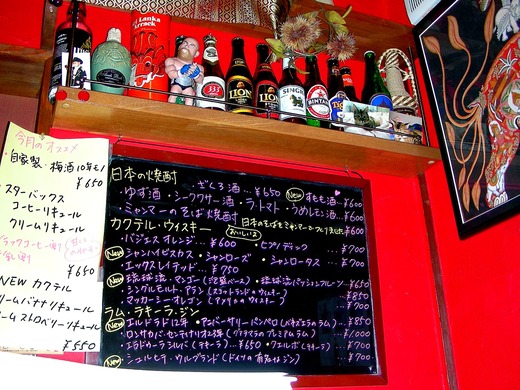 Lanka
Arrack
333
LION
LION
SINGHA
BINTANG
今月のオススメ
・自家製・梅酒10年モノ
¥650
スターバックス
コーヒーリキュール
クリームリキュール
¥650
NEW カクテル
クリームバナナリキュール
クリームストロベリーリキュール
¥550
日本の焼酎
ざくろ酒…¥650 New すもも酒…¥600
・ゆず酒・シークワサー酒・ラ・トマト・うめレモン酒 ¥600
・ミャンマーのそば焼酎
カクテル・ウィスキー おいしいよ
・パジェス オレンジ…¥600 ・ヒプノティック …¥700
New シャンハイビスカス・シャンローズ・シャンロータス…¥700
・エックスレイテッド…¥750
New 琉球流・マンゴー(泡盛ベース)・琉球流パッションフルーツ ¥650
・シングルモルト・アラン(スコットランドのウィスキー) …¥850
・マッカーシー オレゴン(アメリカのウィスキー) …¥700
ラム・テキーラ・ジン
New エルドラド12年・アニバーサリーパンペロ(ベネズエラのラム)…¥850
・ロンサカパ・センテナリオ23年(グァテマラのプレミアムラム)…¥1000
・エラドゥーラ シルバ(テキーラ)…¥650・クエルボ(テキーラ)…¥700
New ・シュルヒテ・ウルグランド(ドイツの有名なジン) …¥700